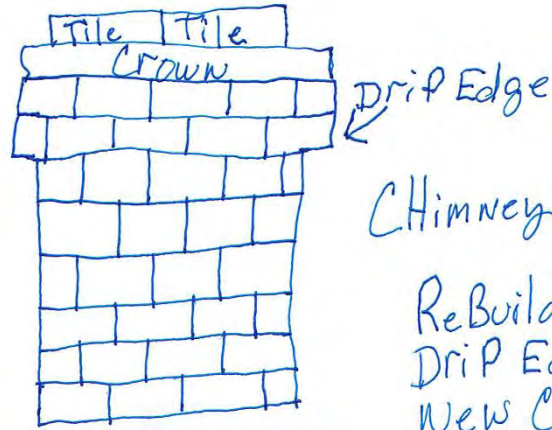 Tile Tile
Crown
Drip Edge
CHimney
ReBuild
DriP Ed
New C